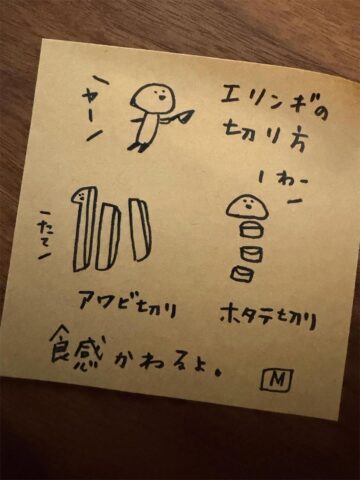 エリンギの
切り方
ヤーン
わー
たて
アワビ切り
ホタテ切り
食感かわるよ。
M